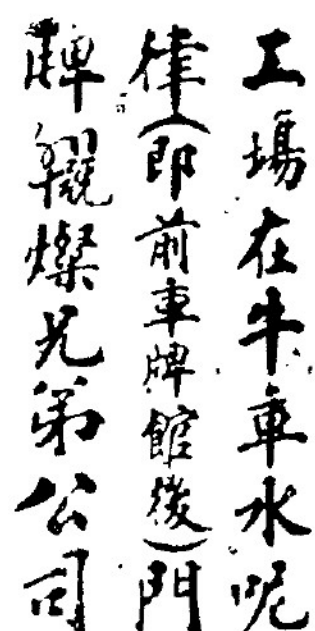 工塲在牛車水呢
律(即前車牌館後)門
牌燦兄弟公司